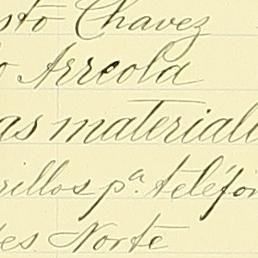 sto Chavez
o Arreola
as materiale
rillos pª teléfon
es Norte